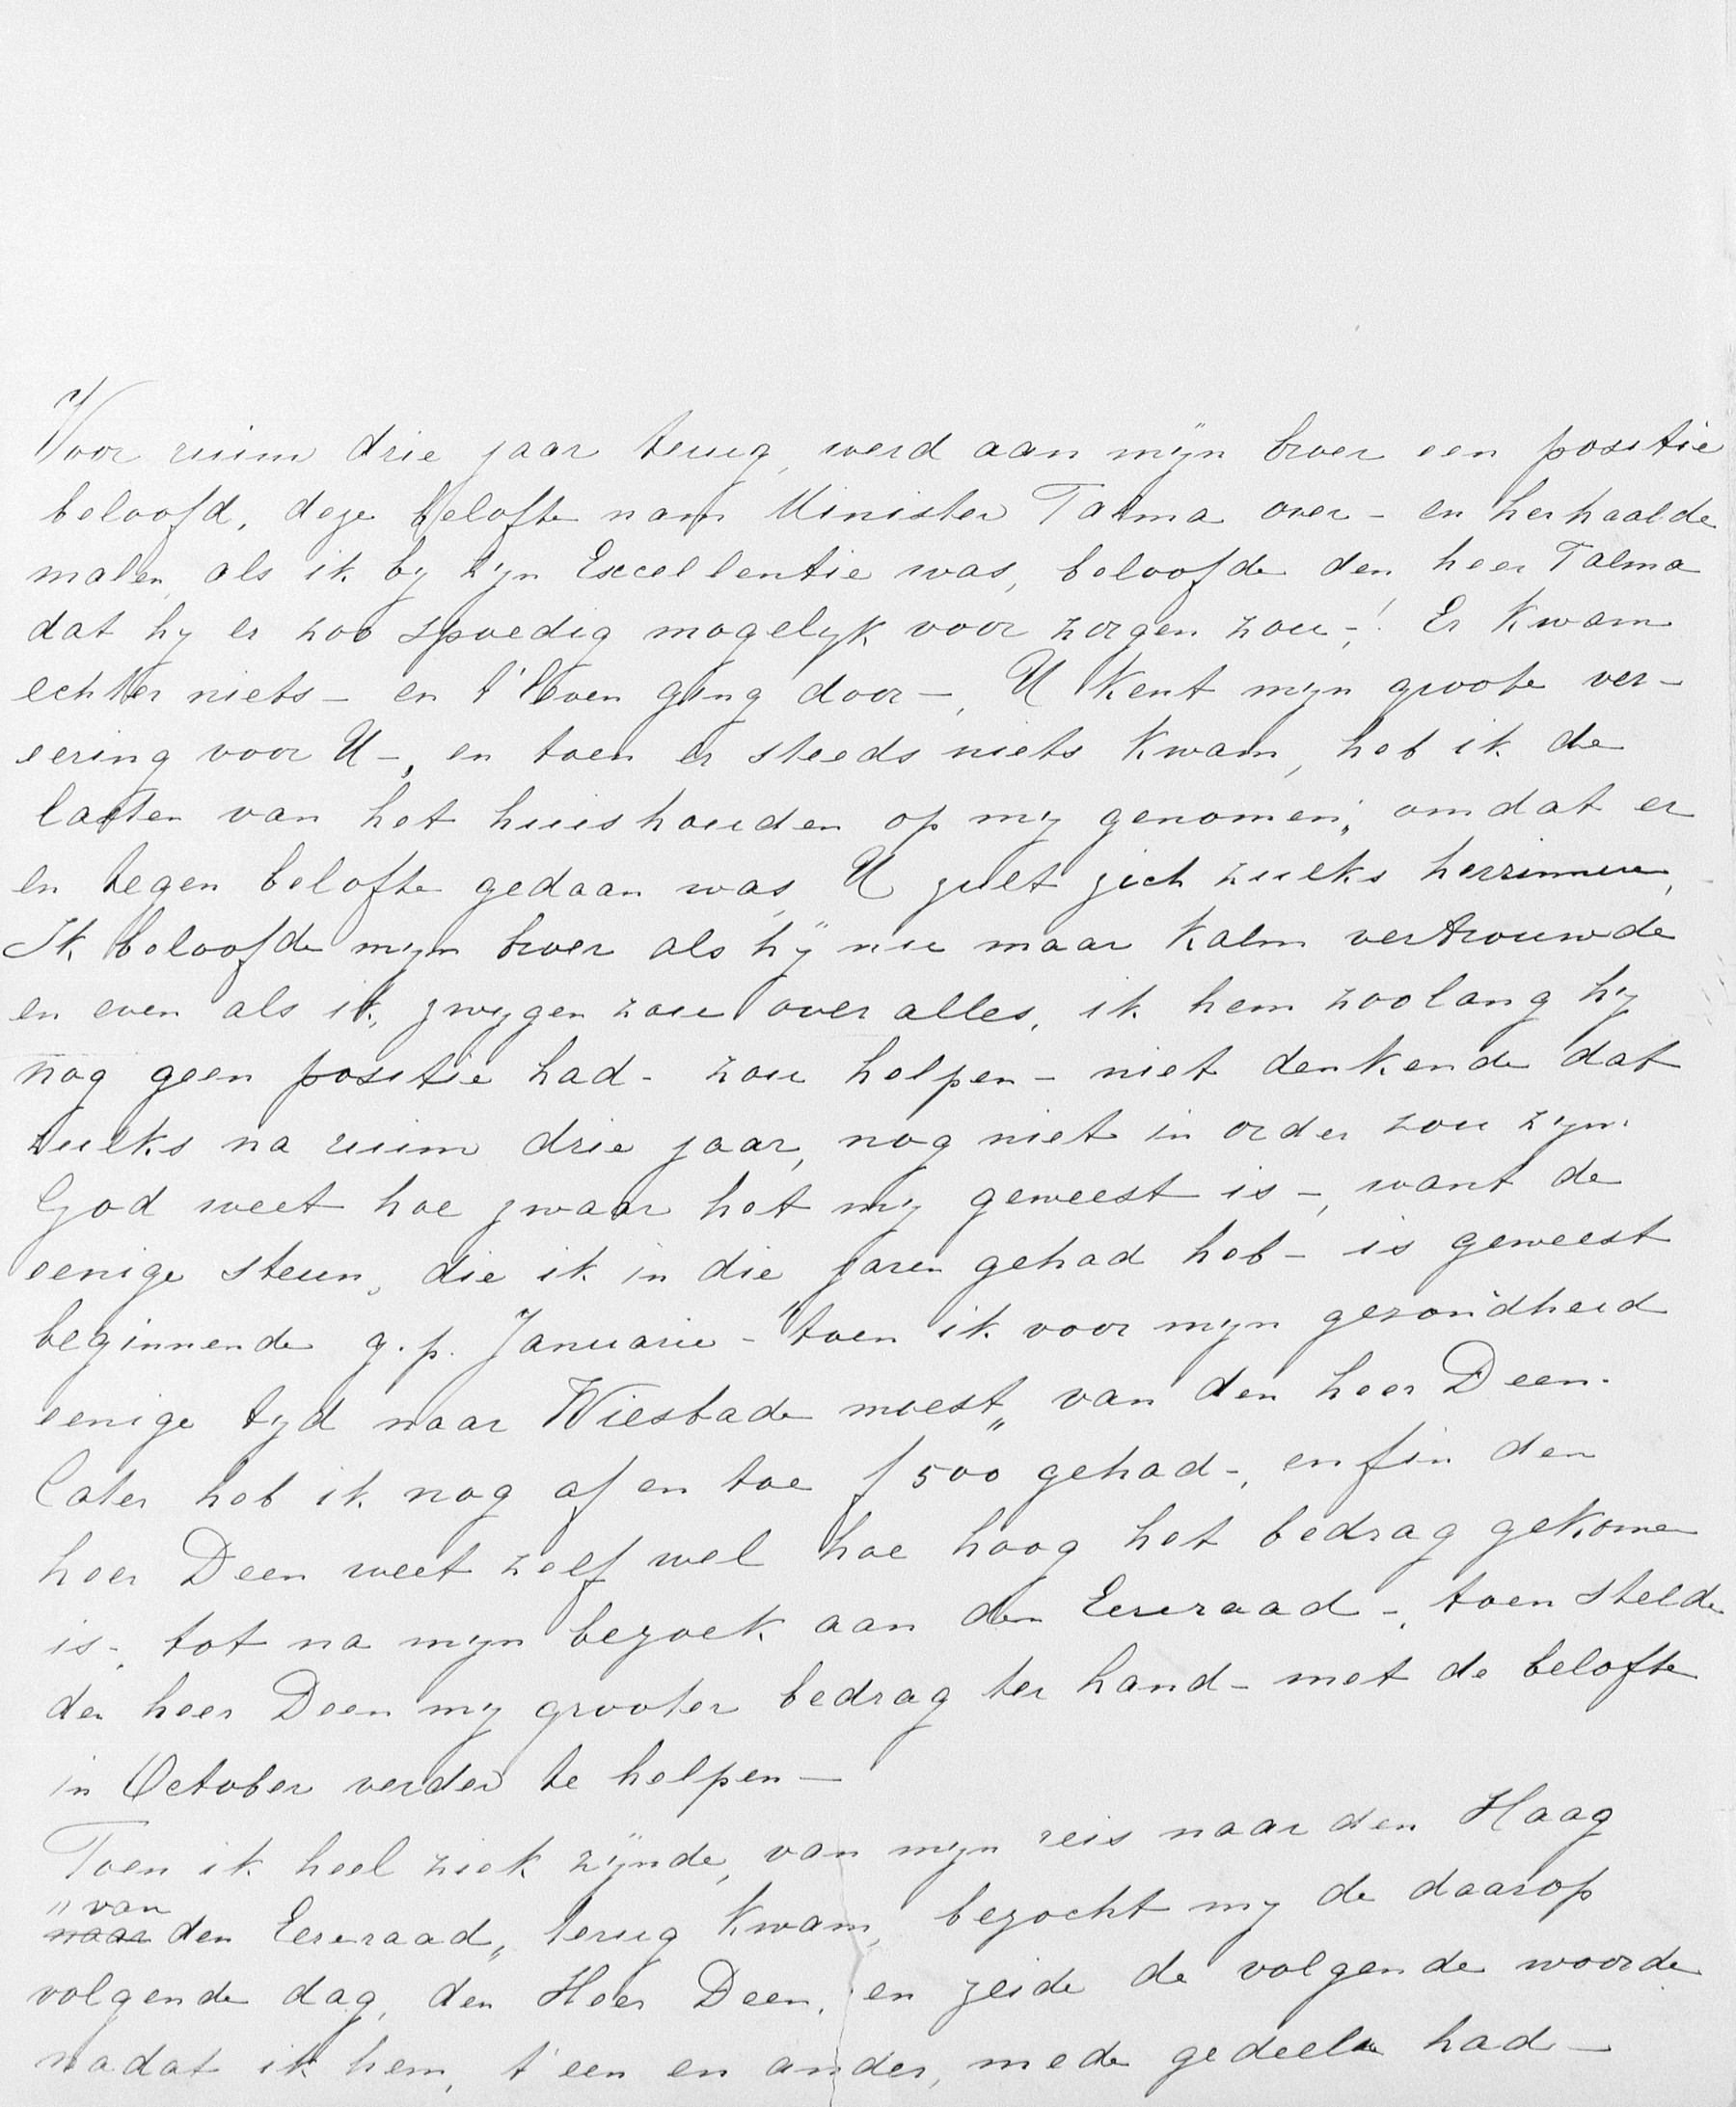 Voor ruim drie jaar terug, werd aan mijn broer een positie
beloofd, deze belofte nam Minister Talma over - en herhaalde
malen, als ik by zijn Excellentie was, beloofde den heer Talma
dat hy er zoo spoedig mogelyk voor zorgen zou -! Er kwam
echter niets - en t' leven ging door -, U kent mijn groote ver-
eering voor U -, en toen er steeds niets kwam, heb ik de
lasten van het huishouden op mij genomen, omdat er
en tegen belofte gedaan was, U zult zich zulks herrinneren,
Ik beloofde mijn broer als hij nu maar kalm vertrouwde
en even als ik, zwijgen zou over alles, ik hem zoolang hij
nog geen positie had - zou helpen - niet denkende dat
zulks na ruim drie jaar, nog niet in order zou zijn.
God weet hoe zwaar het mij geweest is -, want de
eenige steun, die ik in die jaren gehad heb - is geweest
beginnende g.p. Januarie - "toen ik voor mijn gezondheid
eenige tyd naar Wiesbade moest„ van den heer Deen.
Later heb ik nog af en toe f 500 gehad -, enfin den
heer Deen weet zelf wel hoe hoog het bedrag gekomen
is -, tot na mijn bezoek aan den Eereraad -, toen stelde
den heer Deen mij grooter bedrag ter hand - met de belofte
in October verder te helpen -
Toen ik heel ziek zijnde, van mijn reis naar den Haag
"van
naar den Eereraad„ terug kwam, bezocht mij de daarop
volgende dag, den Heer Deen, en zeide de volgende woorde
nadat ik hem, t'een en ander, mede gedeeld had -